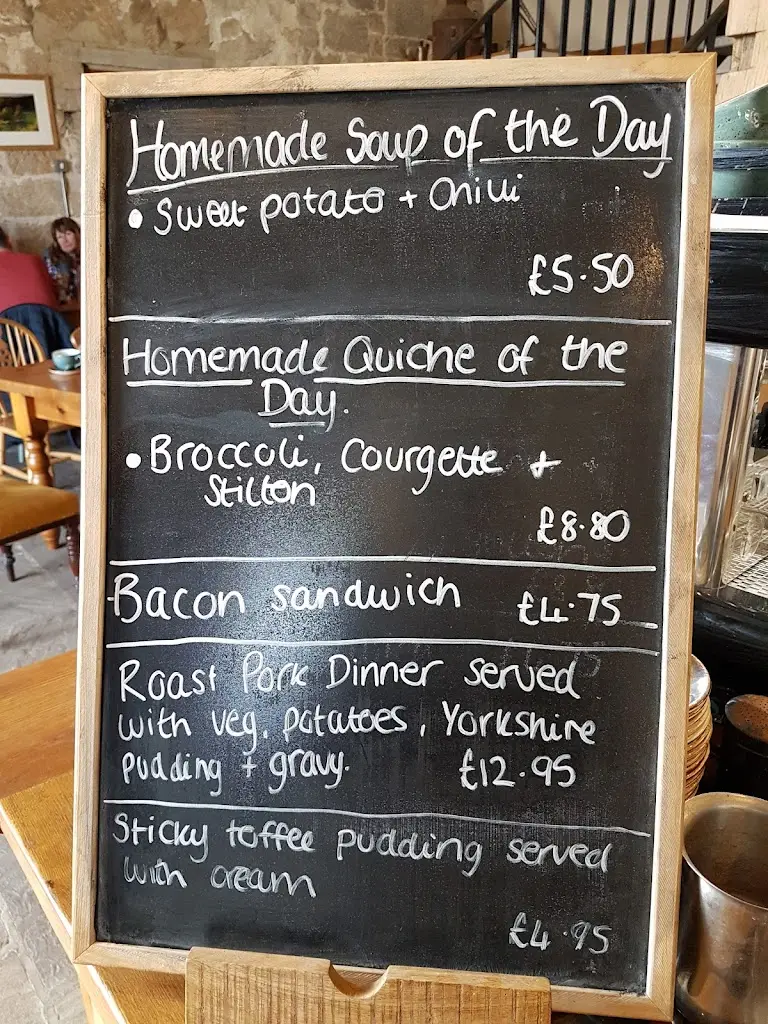 Homemade Soup of the Day
• Sweet potato + Chilli
£5.50
Homemade Quiche of the
Day.
• Broccoli, Courgette +
Stilton
£8.80
Bacon sandwich £4.75
Roast Pork Dinner served
with veg, potatoes, Yorkshire
pudding + gravy. £12.95
Sticky toffee pudding served
with cream
£4.95